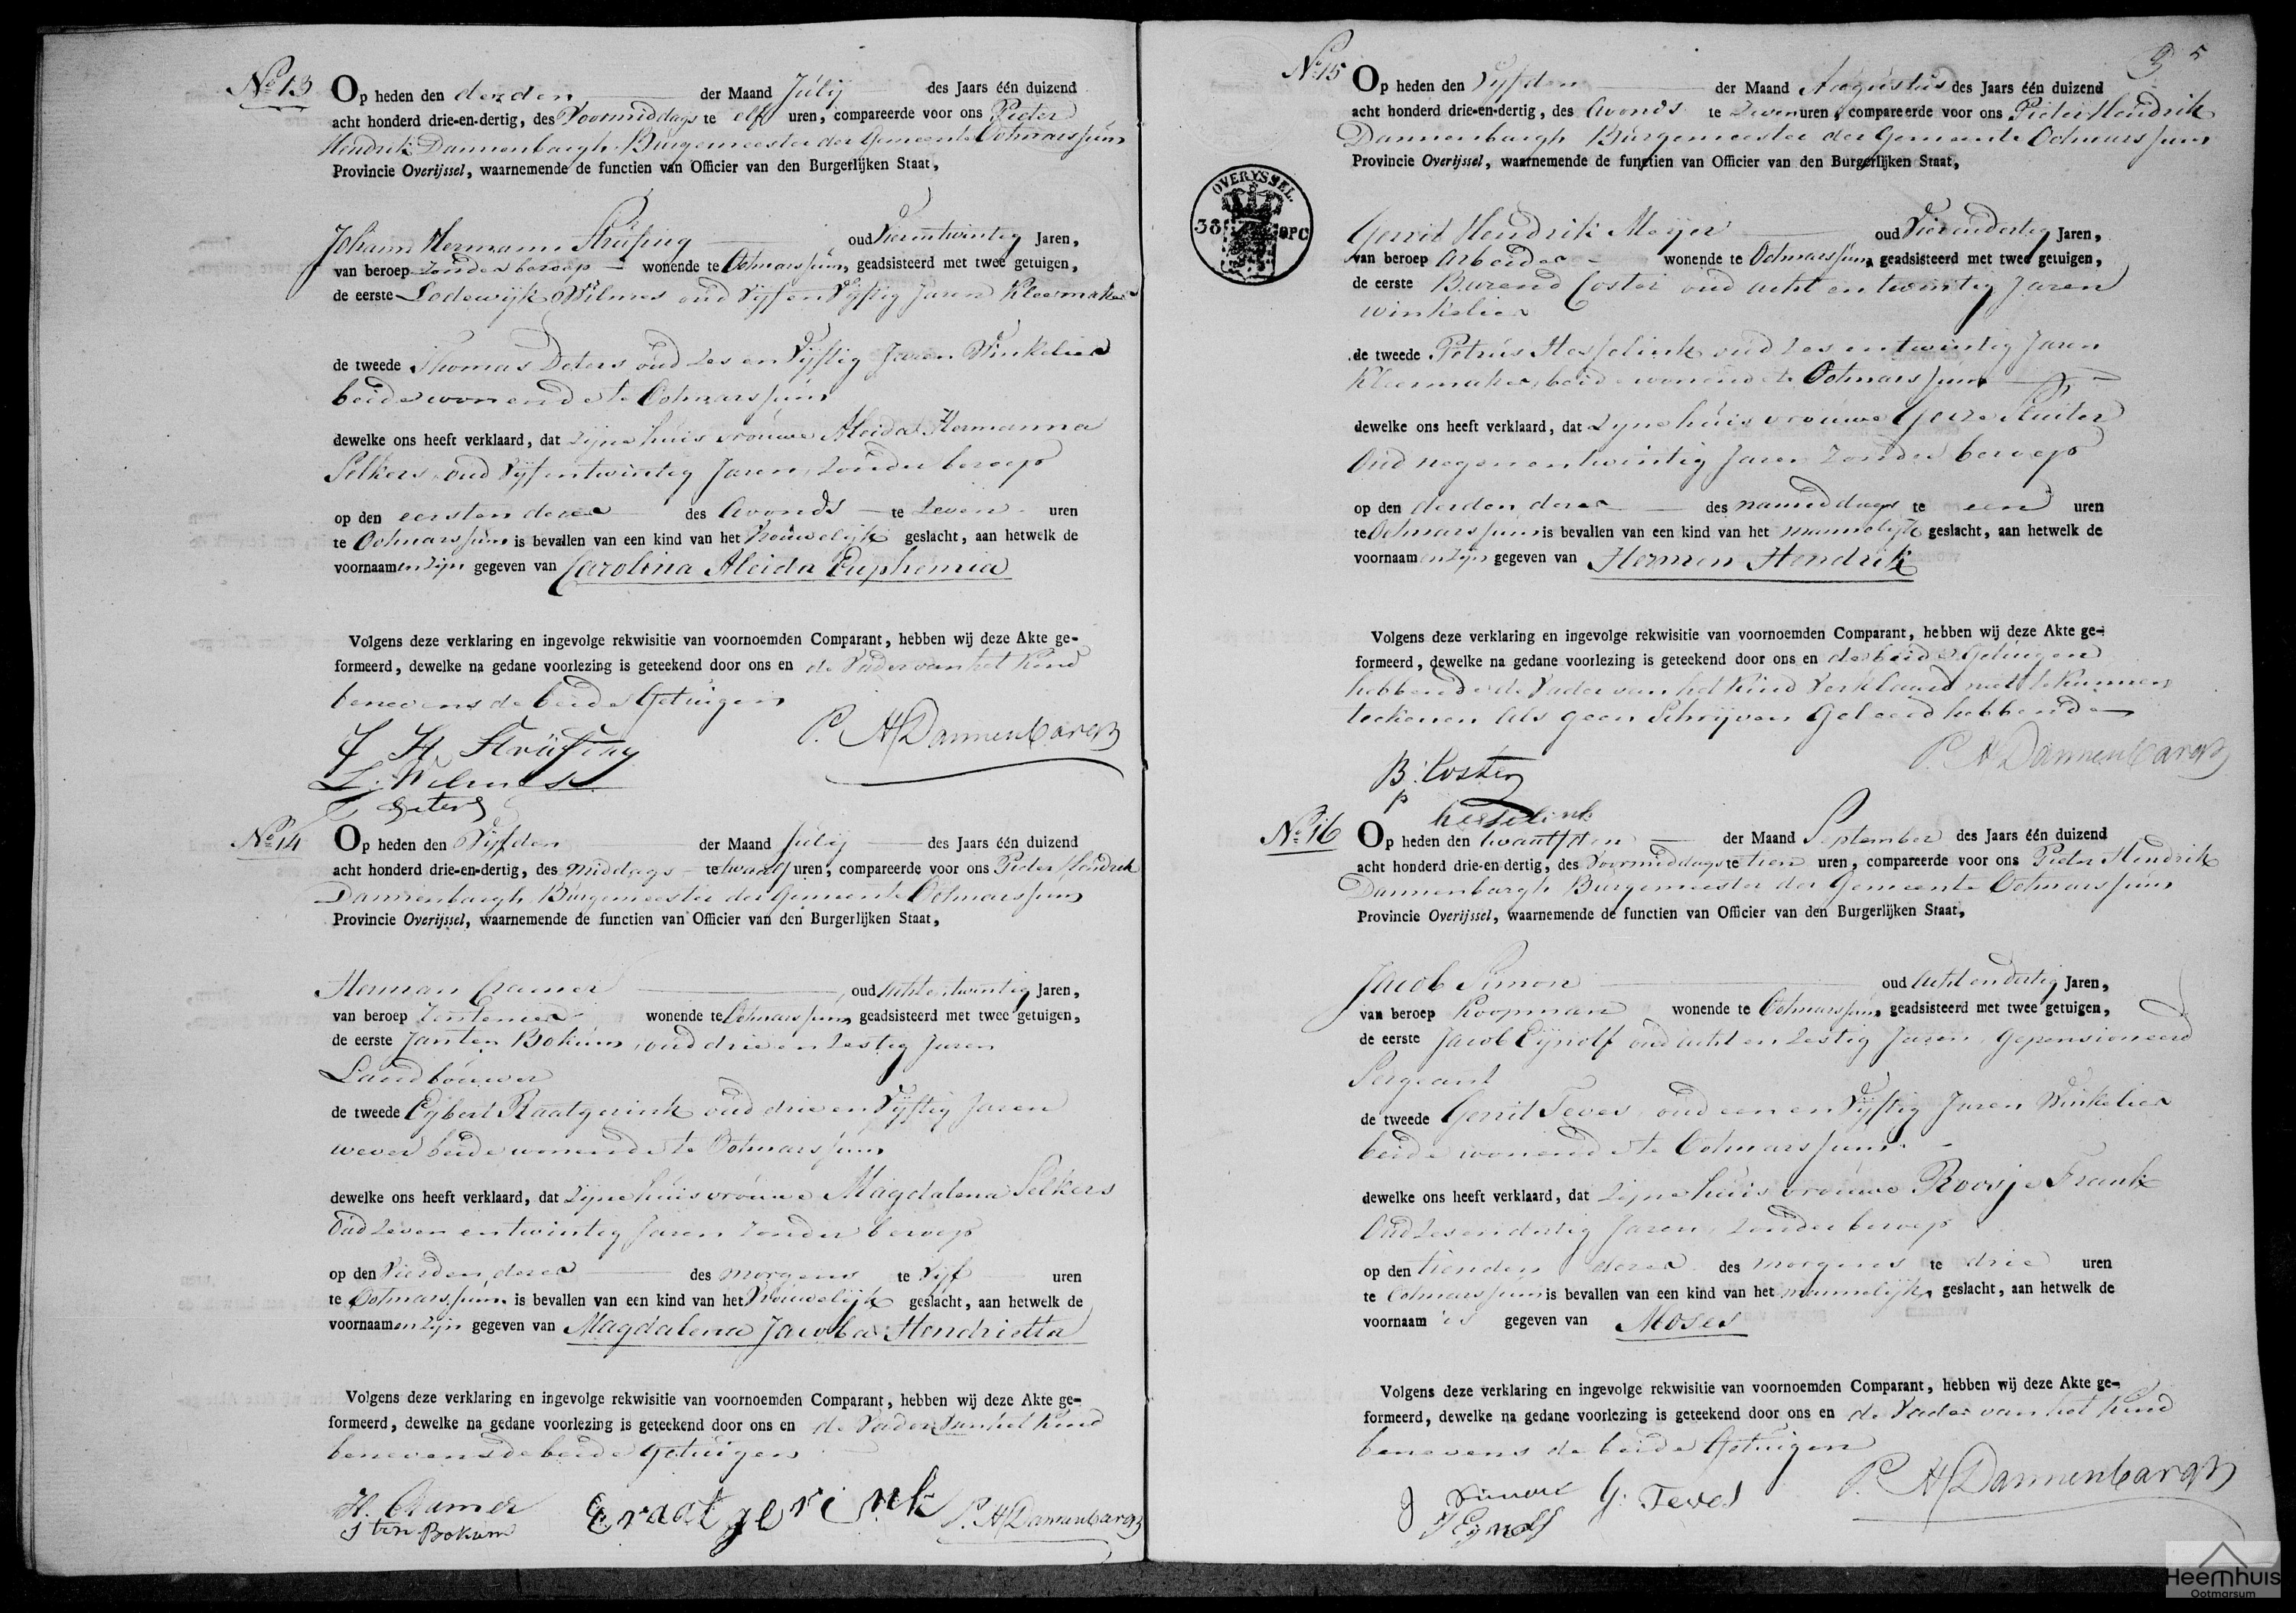 No 13 Op heden den derden der Maand Julij des Jaars één duizend
acht honderd drie-en-dertig, des Voormiddags te elf uren, compareerde voor ons Pieter
Hendrik Dannenbargh Burgemeester der Gemeente Ootmarssum
Provincie Overijssel, waarnemende de functien van Officier van den Burgerlijken Staat,
Johann Hermann Strüfing oud Vierentwintig Jaren,
van beroep zonder beroep wonende te Ootmarssum, geadsisteerd met twee getuigen,
de eerste Lodewijk Wilmes oud Vijf en Vijftig Jaren Kleermaker
de tweede Thomas Deters oud Zes en Vijftig Jaren Winkelier
beide wonende te Ootmarssum
dewelke ons heeft verklaard, dat zijne huisvrouwe Aleida Hermanna
Selkers oud Vijfentwintig Jaren, zonder beroep
op den eersten dezer des Avonds te Zeven uren
te Ootmarssum is bevallen van een kind van het Vrouwelijk geslacht, aan hetwelk de
voornaamen zijn gegeven van Carolina Aleida Euphemia
Volgens deze verklaring en ingevolge rekwisitie van voornoemden Comparant, hebben wij deze Akte ge-
formeerd, dewelke na gedane voorlezing is geteekend door ons en de Vader van het Kind
benevens de beide Getuigen
J H Strüfing
P. H Dannenbargh
L. Wilmes
T Deters
No 14 Op heden den Vijfden der Maand Julij des Jaars één duizend
acht honderd drie-en-dertig, des middags te twaalf uren, compareerde voor ons Pieter Hendrik
Dannenbargh Burgemeester der Gemeente Ootmarssum
Provincie Overijssel, waarnemende de functien van Officier van den Burgerlijken Staat,
Herman Cramer oud achtentwintig Jaren,
van beroep wonende te Ootmarssum, geadsisteerd met twee getuigen,
de eerste Jan ten Bokum, oud drie en Zestig Jaren
Landbouwer
de tweede Egbert Raatgerink oud drie en Vijftig Jaren
wever beide wonende te Ootmarssum
dewelke ons heeft verklaard, dat zijne huisvrouwe Magdalena Selkers
Oud Zeven entwintig Jaren zonder beroep
op den Vierden dezer des morgens te Vijf uren
te Ootmarssum is bevallen van een kind van het Vrouwelijk geslacht, aan hetwelk de
voornaamen zijn gegeven van Magdalena Jacoba Hendrietta
Volgens deze verklaring en ingevolge rekwisitie van voornoemden Comparant, hebben wij deze Akte ge-
formeerd, dewelke na gedane voorlezing is geteekend door ons en de Vader van het Kind
benevens de beide Getuigen
H. Cramer
E raatgerink
P. H Dannenbargh
J ten Bokum
5
No 15 Op heden den Vijfden der Maand Augustus des Jaars één duizend
acht honderd drie-en-dertig, des Avonds te Zeven uren, compareerde voor ons Pieter Hendrik
Dannenbargh Burgemeester der Gemeente Ootmarssum
Provincie Overijssel, waarnemende de functien van Officier van den Burgerlijken Staat,
OVERYSSEL
38 OPC
Gerrit Hendrik Meijer oud Vierendertig Jaren,
van beroep Arbeider wonende te Ootmarssum, geadsisteerd met twee getuigen,
de eerste Barend Coster oud acht en twintig Jaren
winkelier
de tweede Petrus Hesselink oud Zes entwintig Jaren
Kleermaker, beide wonende te Ootmarssum
dewelke ons heeft verklaard, dat zijne huisvrouwe Geize Sluiter
Oud negenentwintig Jaren Zonder beroep
op den derden dezer des namiddags te een uren
te Ootmarssum is bevallen van een kind van het mannelijk geslacht, aan hetwelk de
voornaamen zijn gegeven van Hermen Hendrik
Volgens deze verklaring en ingevolge rekwisitie van voornoemden Comparant, hebben wij deze Akte ge-
formeerd, dewelke na gedane voorlezing is geteekend door ons en de beide Getuigen
hebbende de Vader van het Kind Verklaard niet te kunnen
teekenen als geen Schrijven Geleerd hebbende
P. H Dannenbargh
B: Coster
p hesselink
No 16 Op heden den twaalfden der Maand September des Jaars één duizend
acht honderd drie-en-dertig, des Voormiddags te tien uren, compareerde voor ons Pieter Hendrik
Dannenbargh Burgemeester der Gemeente Ootmarssum
Provincie Overijssel, waarnemende de functien van Officier van den Burgerlijken Staat,
Jacob Simon oud acht endertig Jaren,
van beroep Koopman wonende te Ootmarssum, geadsisteerd met twee getuigen,
de eerste Jacob Eijnolf oud acht en Zestig Jaren, Gepensioneerd
Sergeant
de tweede Gerrit Teves, oud een en Vijftig Jaren Winkelier
beide wonende te Ootmarssum
dewelke ons heeft verklaard, dat zijne huisvrouwe Roosje Frank
Oud Zesendertig Jaren, zonder beroep
op den tienden dezer des morgens te drie uren
te Ootmarssum is bevallen van een kind van het mannelijk geslacht, aan hetwelk de
voornaam is gegeven van Moses
Volgens deze verklaring en ingevolge rekwisitie van voornoemden Comparant, hebben wij deze Akte ge-
formeerd, dewelke na gedane voorlezing is geteekend door ons en de Vader van het Kind
benevens de beide Getuigen
J Simon G. Teves
P. H Dannenbargh
J Eynolf
Heemhuis
Ootmarsum